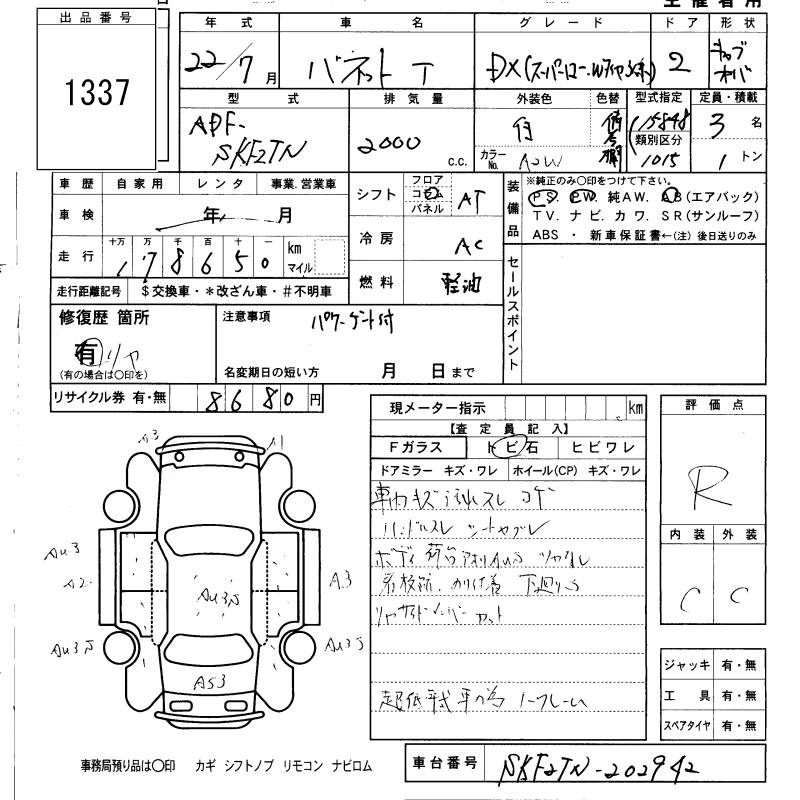 主催者用
出品番号
1337
年式 車名 グレード ドア 形状
22/7月 バネット T DX(スーパーロー 2
型式 排気量 外装色 色替 型式指定 定員・積載
ADF-
SKF2TN
2000 c.c.
カラーNo.
15848
類別区分
1015
3 名
1 トン
車歴 自家用 レンタ 事業.営業車
車検 年 月
走行 十万 万 千 百 十 一 km マイル
178650
走行距離記号 $交換車・*改ざん車・#不明車
シフト フロア コラム パネル AT
冷房 AC
燃料 軽油
装備品
※純正のみ〇印をつけて下さい。
PS. PW. 純AW. AB(エアバック)
TV. ナビ. カワ. SR(サンルーフ)
ABS ・ 新車保証書←(注) 後日送りのみ
セールスポイント
修復歴 箇所
有 リヤ
(有の場合は〇印を)
注意事項 パワーゲート付
名変期日の短い方 月 日まで
リサイクル券 有・無 8680円
現メーター指示 km
【査定員記入】
Fガラス トビ石 ヒビワレ
ドアミラー キズ・ワレ ホイール(CP) キズ・ワレ
車内キズ 汚れ スレ コゲ
ハンドルスレ シートヤブレ
ボディ 荷台
下廻り
カット
超低年式車の為 ノークレーム
評価点
R
内装 外装
C C
ジャッキ 有・無
工具 有・無
スペアタイヤ 有・無
A3 A1
AU3
A2
A3
AU3S
AU3S
AU3S
AS3
事務局預り品は〇印 カギ シフトノブ リモコン ナビロム
車台番号 SKF2TN-202942